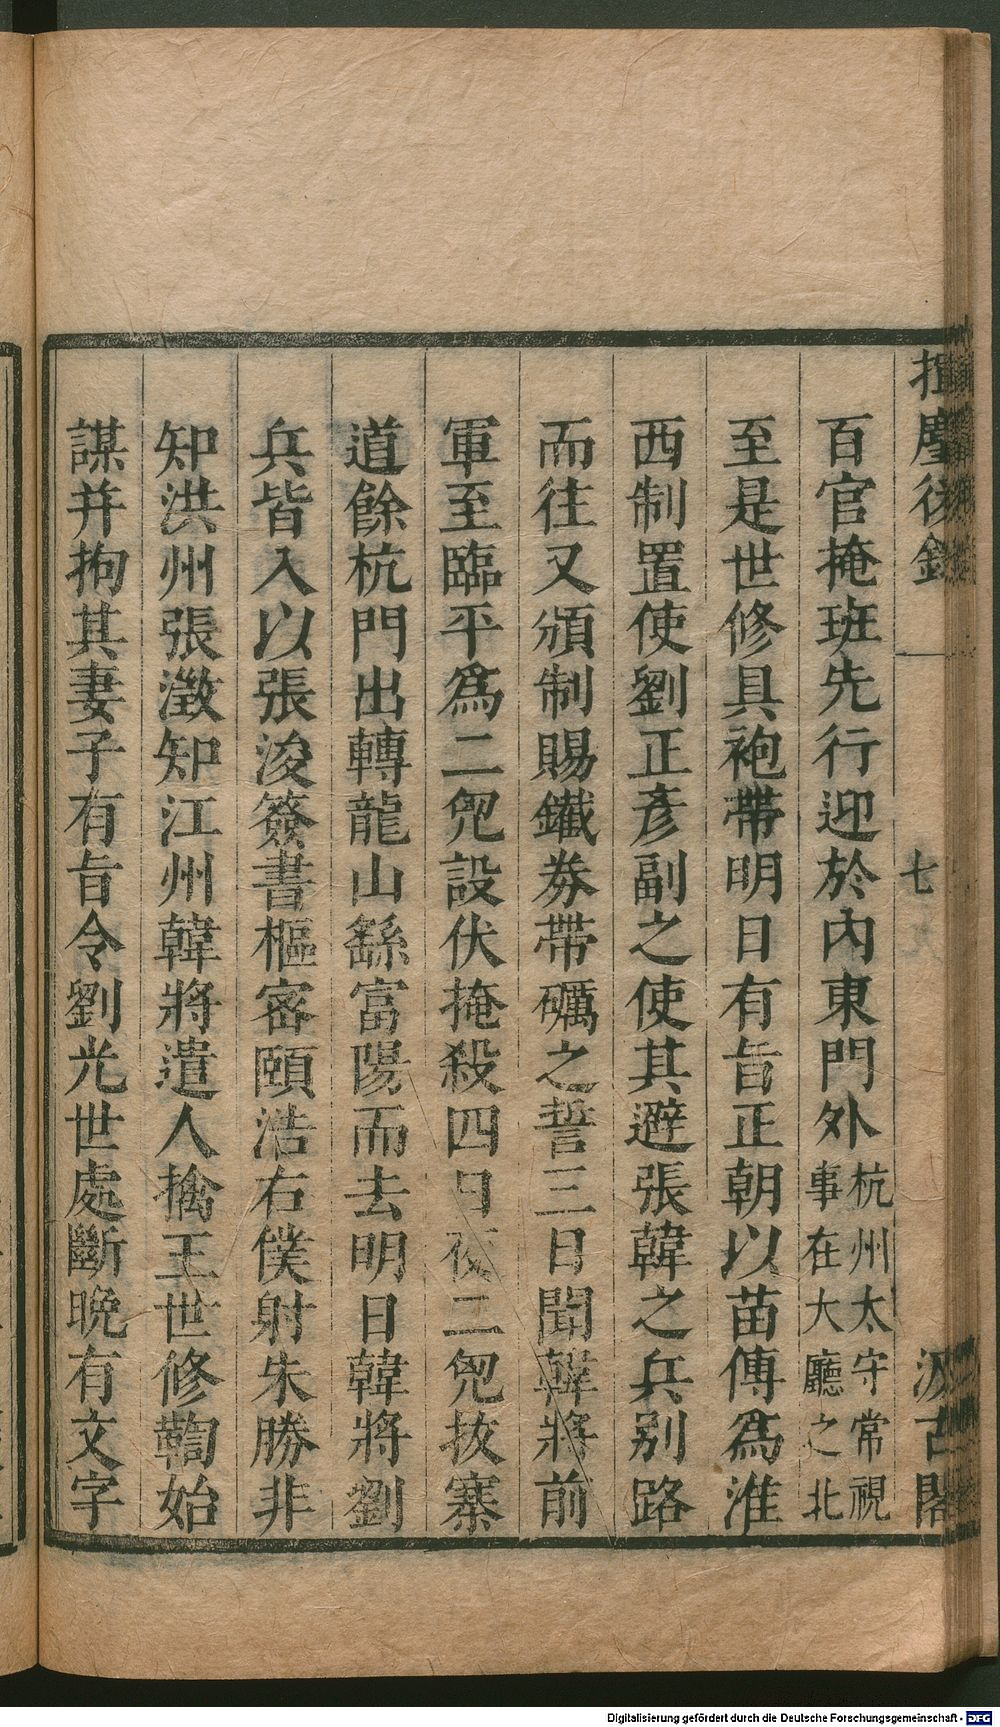 揮麈後錄
七
汲古閣
百官掩班先行迎於內東門外杭州太守常視事在大廳之北
至是世修具袍帶明日有旨正朝以苗傅爲淮
西制置使劉正彥副之使其避張韓之兵别路
而往又頒制賜鐵券帶礪之誓三日聞韓將前
軍至臨平爲二兇設伏掩殺四日夜二兇拔寨
道餘杭門出轉龍山繇富陽而去明日韓將劉
兵皆入以張浚簽書樞密頤浩右僕射朱勝非
知洪州張澂知江州韓將遣人擒王世修鞫始
謀并拘其妻子有旨令劉光世處斷晚有文字
Digitalisierung gefördert durch die Deutsche Forschungsgemeinschaft - DFG